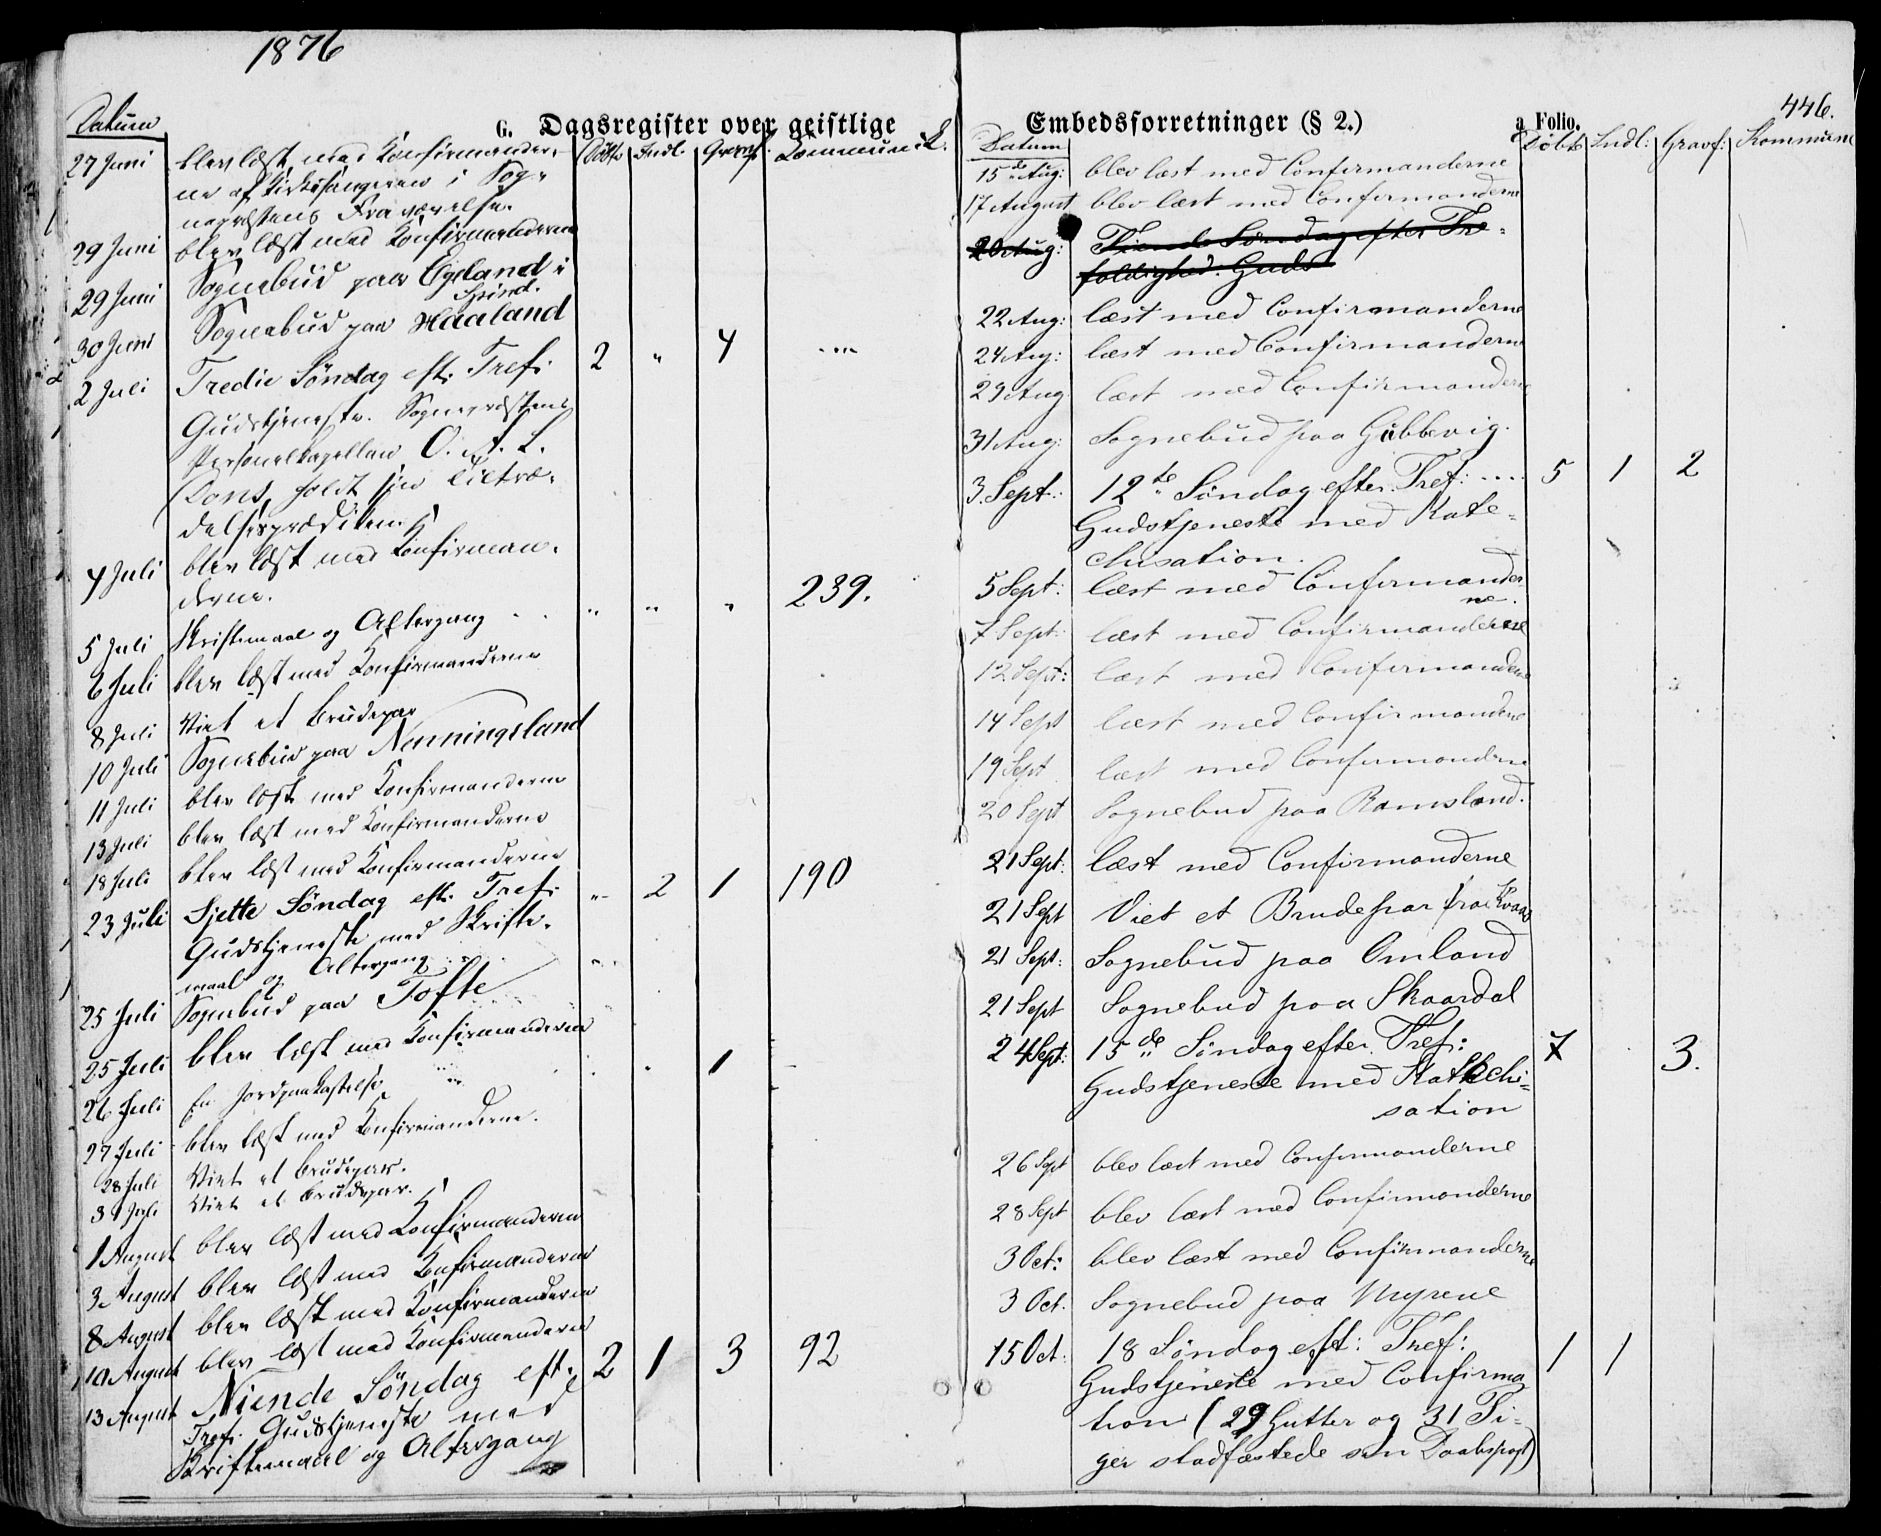 1876
446.
G. Dagsregister over geistlige
Embedsforretninger (§ 2.)
a Folio.
Datum
Døbte Indl. Gravf. Kommunik.
27 Juni blev læst med Konfirmander-
ne af Kirkesangeren i Sog-
nepræstens Fraværelse.
29 Juni blev læst med Konfirmanderne
29 Juni Sognebud paa Egeland i
Spind.
30 Juni Sognebud paa Haaland
2 Juli Tredie Søndag eft. Tref. 2 " 4 ....
Gudstjeneste. Sognepræstens
Personelkapellan O. A. L.
Dons holdt sin Tiltræ-
delsesprædiken.
4 Juli blev læst med Konfirman-
derne.
5 Juli Skriftemaal og Altergang " " " 239.
6 Juli blev læst med Konfirmanderne
8 Juli Viet et Brudepar
10 Juli Sognebud paa Nenningsland
11 Juli blev læst med Konfirmanderne
13 Juli blev læst med Konfirmanderne
18 Juli blev læst med Konfirmanderne
23 Juli Sjette Søndag eft. Tref. " 2 1 190
Gudstjeneste med Skrifte-
maal og Altergang
25 Juli Sognebud paa Tofte
25 Juli blev læst med Konfirmanderne
26 Juli En Jordpaakastelse " . . 1
27 Juli blev læst med Konfirmanderne.
28 Juli Viet et Brudepar.
31 Juli Viet et Brudepar.
1 August blev læst med Konfirmanderne
3 August blev læst med Konfirmanderne
8 August blev læst med Konfirmanderne
10 August blev læst med Konfirmanderne
13 August Niende Søndag eft. 2 1 3 92
Tref. Gudstjeneste med
Skriftemaal og Altergang
Datum
Døbte Indl: Gravf: Kommun
15de Aug: blev læst med Confirmanderne
17 August blev læst med Confirmanderne
20 Aug: Tiende Søndag efter Tre-
foldighed. Guds
22 Aug: læst med Confirmanderne
24 Aug: læst med Confirmanderne
29 Aug læst med Confirmanderne
31 Aug: Sognebud paa Gibbevig.
3. Sept.: 12te Søndag efter Tref: .... 5 1 2
Gudstjeneste med Kate-
chisation.
5 Sept: læst med Confirmander-
ne.
7 Sept: læst med Confirmanderne
12 Sept: læst med Confirmanderne
14 Sept læst med Confirmanderne
19 Sept læst med Confirmanderne
20 Sept Sognebud paa Ramsland.
21 Sept: læst med Confirmanderne
21 Sept Viet et Brudepar fra Kvaas
21 Sept: Sognebud paa Omland
21 Sept Sognebud paa Skaardal
24 Sept: 15de Søndag efter Tref: 7 3.
Gudstjeneste med Katechi-
sation
26 Sept blev læst med Confirmanderne
28 Sept blev læst med Confirmanderne
3 Oct: blev læst med Confirmanderne
3 Oct. Sognebud paa Myrene
15 Oct. 18 Søndag eft: Tref: 1 1
Gudstjeneste med Confirma
tion (29 Gutter og 31 Pi-
ger stadfæstede sin Daabspagt)